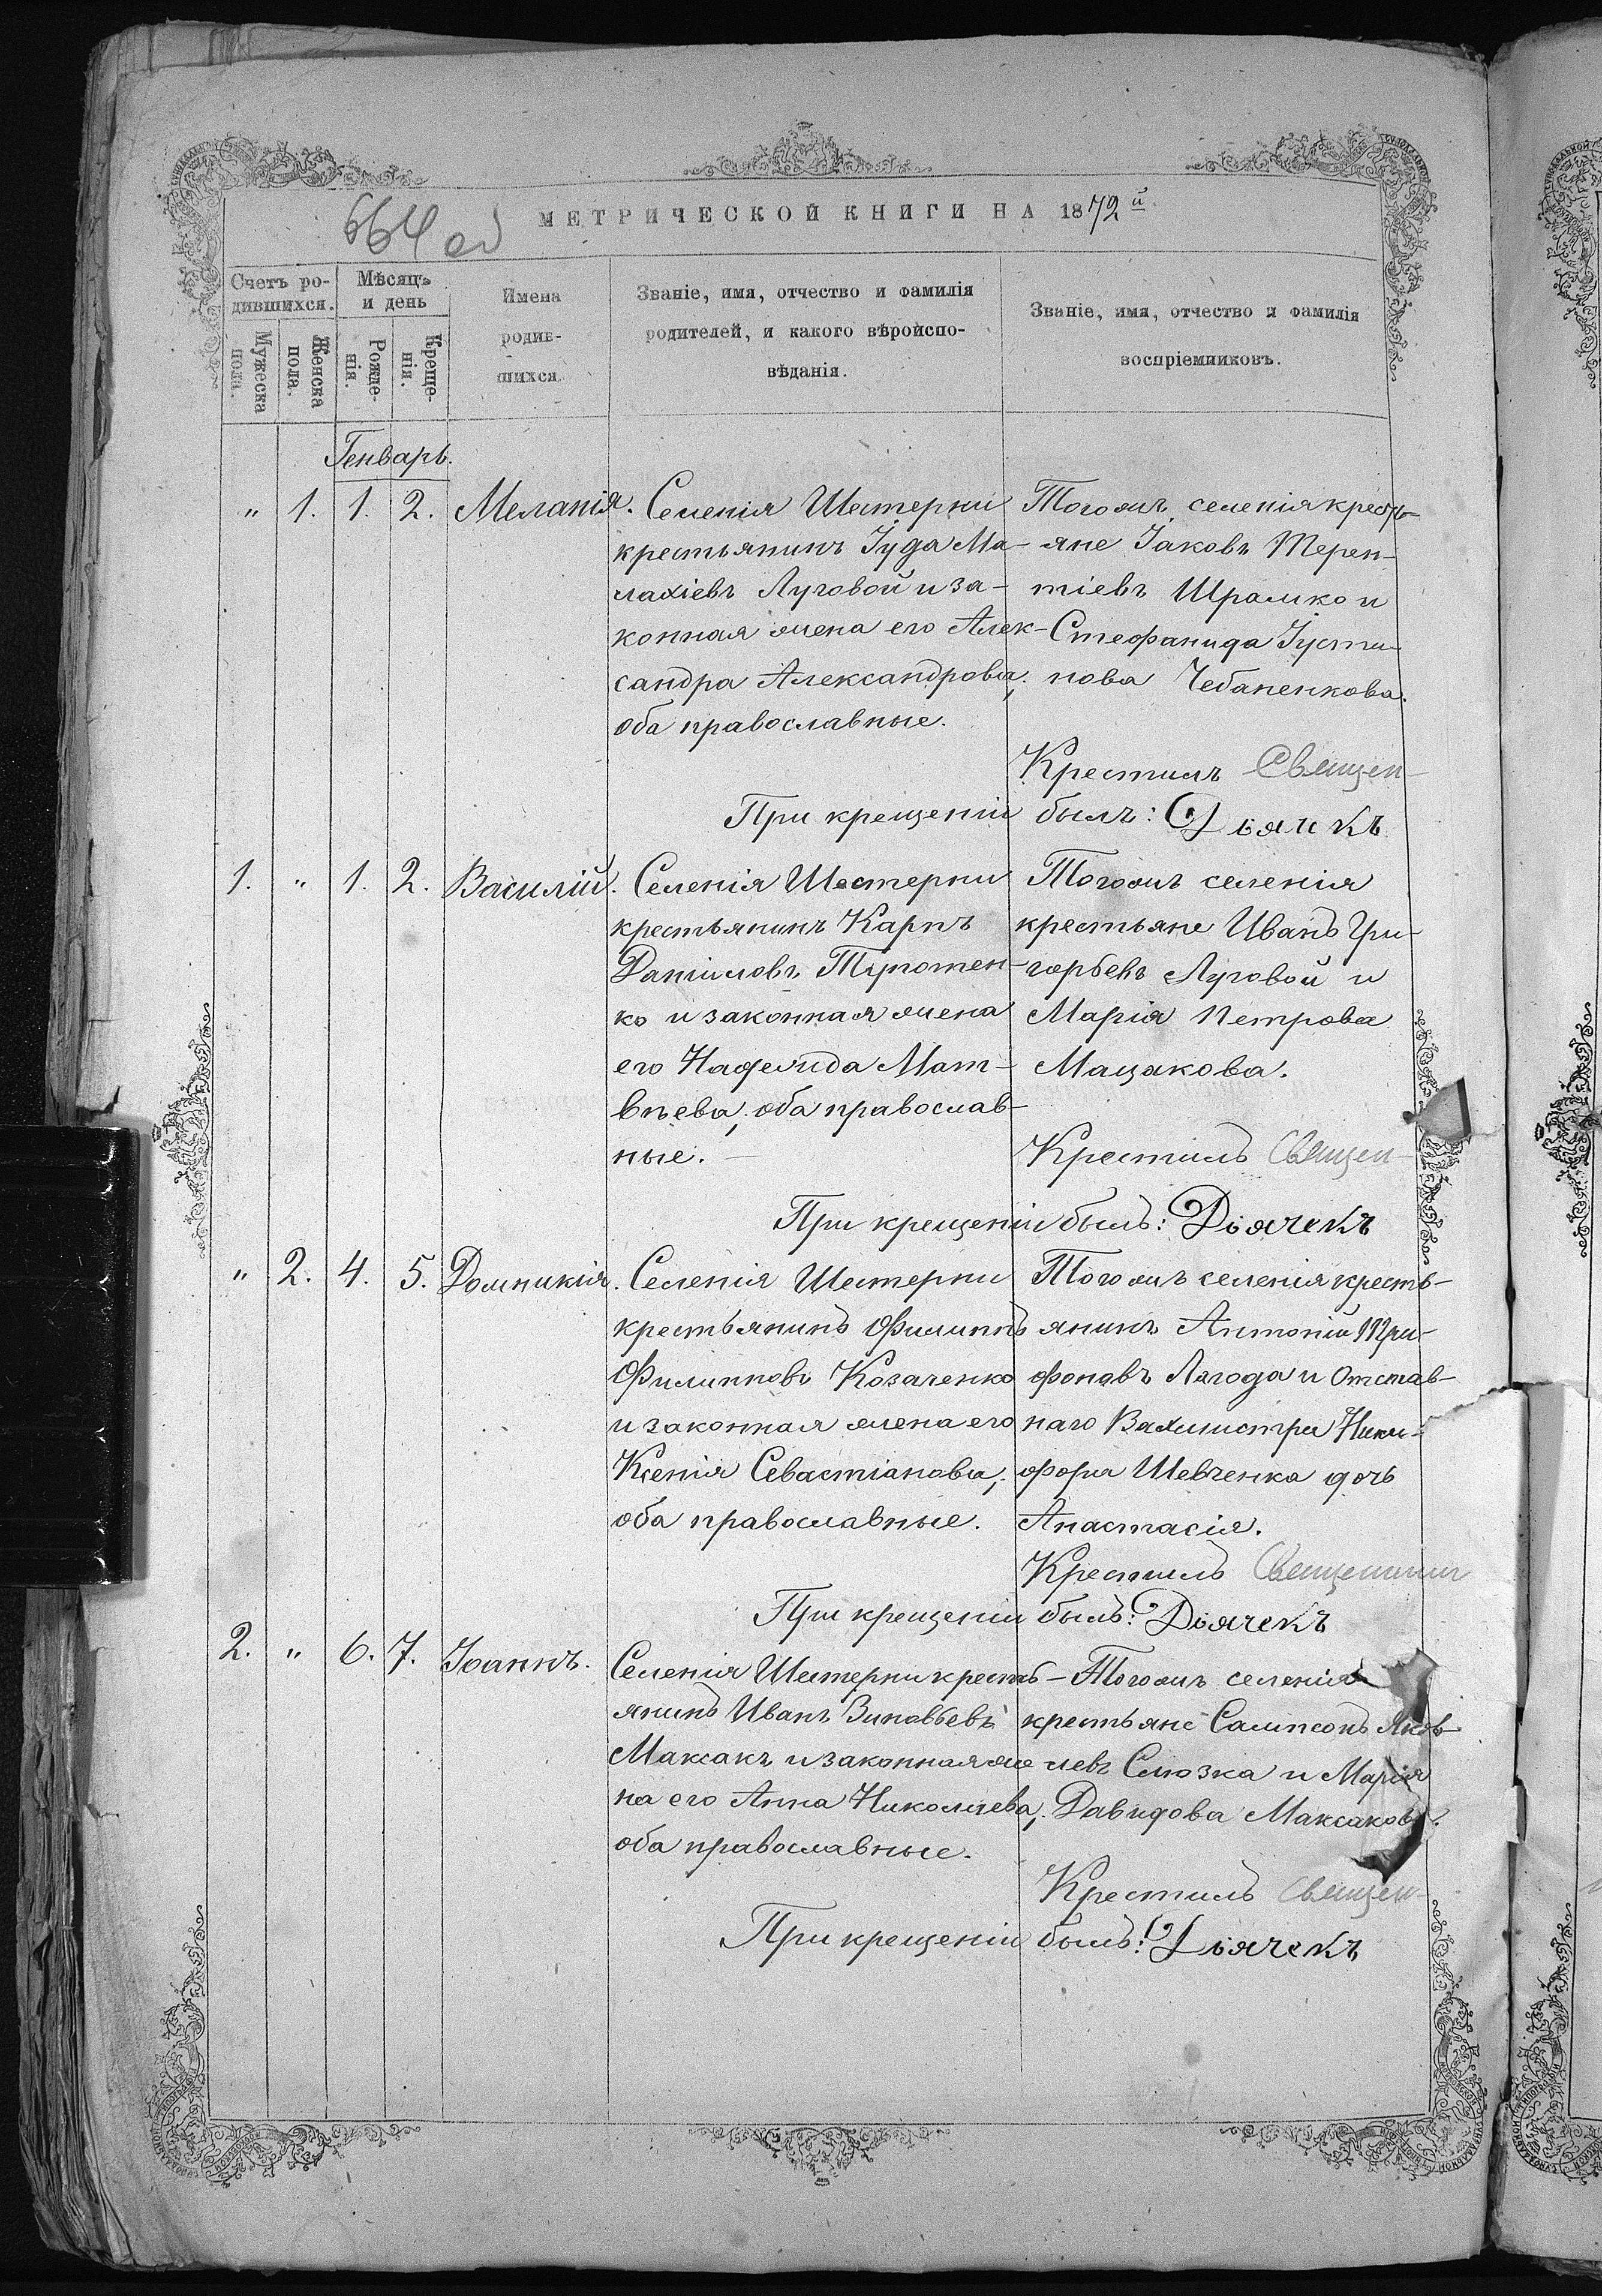 МЕТРИЧЕСКОЙ КНИГИ НА 1872й
664 об
Счетъ ро-
дившихся.
Мужеска
пола.
Женска
пола.
Мѣсяцъ
и день
Рожде-
нія.
Креще-
нія.
Имена
родив-
шихся.
Званіе, имя, отчество и фамилія
родителей, и какого вѣроиспо-
вѣданія.
Званіе, имя, отчество и фамилія
воспріемниковъ.
Генварь.
" 1. 1. 2. Меланія.
Селенія Шестерни
крестьянинъ Іуда Ма-
лахіевъ Луговой и за-
конная жена его Алек-
сандра Александрова;
оба православные.
Тогожъ селенія кресть-
яне Іаковъ Терен-
тіевъ Шрамко и
Стефанида Іусти-
нова Чебаненкова.
Крестилъ Священ-
При крещеніи былъ: Діячекъ
1. " 1. 2. Василій.
Селенія Шестерни
крестьянинъ Карпъ
Даніиловъ Тупотен-
ко и законная жена
его Надежда Мат-
вѣева; оба православ-
ные.
Тогожъ селенія
крестьяне Иванъ Гри-
горьевъ Луговой и
Марія Петрова
Мацакова.
Крестилъ Священ-
При крещеніи былъ: Діячекъ
" 2. 4. 5. Домникія.
Селенія Шестерни
крестьянинъ Филиппъ
Филипповъ Козаченко
и законная жена его
Ксенія Севастіанова;
оба православные.
Тогожъ селенія кресть-
янинъ Антоній Три-
фоновъ Лагода и Отстав-
наго Вахмистра Ники-
фора Шевченка дочь
Анастасія.
Крестилъ Священник
При крещеніи былъ: Діячекъ
2. " 6. 7. Іоаннъ.
Селенія Шестерни кресть-
янинъ Иванъ Зиновьевъ
Максакъ и законная же
на его Анна Николаева;
оба православные.
Тогожъ селенія
крестьяне Сампсонъ Яков-
левъ Слюзка и Марія
Давидова Максакова.
Крестилъ Священ-
При крещеніи былъ: Діячекъ